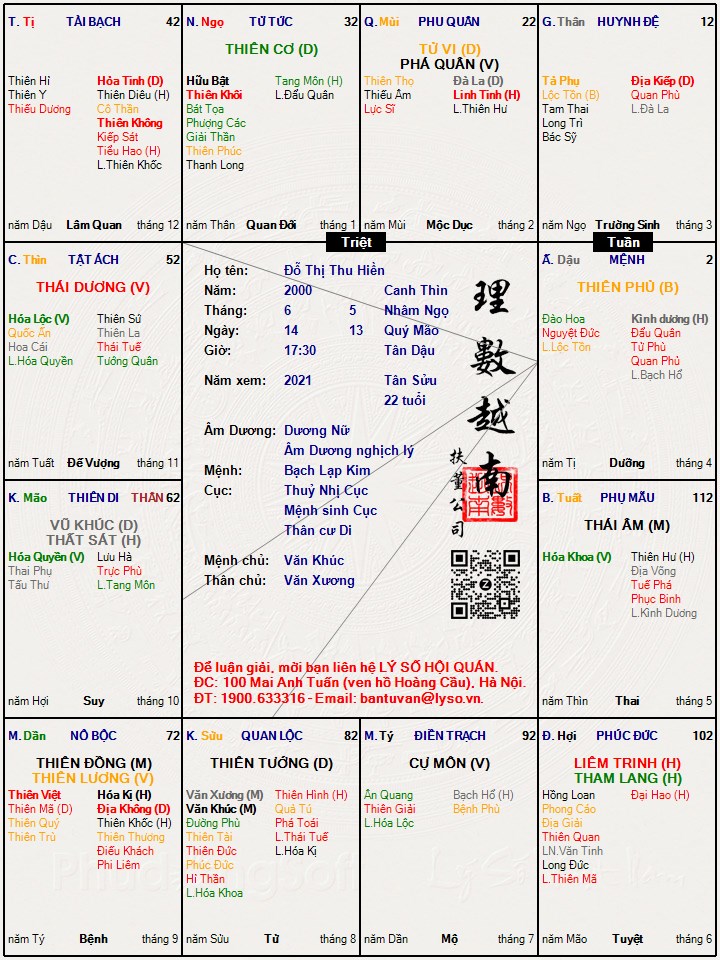 T. Tị TÀI BẠCH 42
Thiên Hỉ Hỏa Tinh (D)
Thiên Y Thiên Diêu (H)
Thiếu Dương Cô Thần
Thiên Không
Kiếp Sát
Tiểu Hao (H)
L.Thiên Khốc
năm Dậu Lâm Quan tháng 12
N. Ngọ TỬ TỨC 32
THIÊN CƠ (D)
Hữu Bật Tang Môn (H)
Thiên Khôi L.Đẩu Quân
Bát Tọa
Phượng Các
Giải Thần
Thiên Phúc
Thanh Long
năm Thân Quan Đới tháng 1
Q. Mùi PHU QUÂN 22
TỬ VI (D)
PHÁ QUÂN (V)
Thiên Thọ Đà La (D)
Thiếu Âm Linh Tinh (H)
Lực Sĩ L.Thiên Hư
năm Mùi Mộc Dục tháng 2
G. Thân HUYNH ĐỆ 12
Tả Phụ Địa Kiếp (D)
Lộc Tồn (B) Quan Phủ
Tam Thai L.Đà La
Long Trì
Bác Sỹ
năm Ngọ Trường Sinh tháng 3
Triệt
Tuần
C. Thìn TẬT ÁCH 52
THÁI DƯƠNG (V)
Hóa Lộc (V) Thiên Sứ
Quốc Ấn Thiên La
Hoa Cái Thái Tuế
L.Hóa Quyền Tướng Quân
năm Tuất Đế Vượng tháng 11
Họ tên: Đỗ Thị Thu Hiền
Năm: 2000 Canh Thìn
Tháng: 6 5 Nhâm Ngọ
Ngày: 14 13 Quý Mão
Giờ: 17:30 Tân Dậu
Năm xem: 2021 Tân Sửu
22 tuổi
Âm Dương: Dương Nữ
Âm Dương nghịch lý
Mệnh: Bạch Lạp Kim
Cục: Thuỷ Nhị Cục
Mệnh sinh Cục
Thân cư Di
Mệnh chủ: Văn Khúc
Thân chủ: Văn Xương
理數越南
扶董公司
Để luận giải, mời bạn liên hệ LÝ SỐ HỘI QUÁN.
ĐC: 100 Mai Anh Tuấn (ven hồ Hoàng Cầu), Hà Nội.
ĐT: 1900.633316 - Email: bantuvan@lyso.vn.
Ấ. Dậu MỆNH 2
THIÊN PHỦ (B)
Đào Hoa Kình dương (H)
Nguyệt Đức Đẩu Quân
L.Lộc Tồn Tử Phù
Quan Phù
L.Bạch Hổ
năm Tị Dưỡng tháng 4
K. Mão THIÊN DI THÂN 62
VŨ KHÚC (D)
THẤT SÁT (H)
Hóa Quyền (V) Lưu Hà
Thai Phụ Trực Phù
Tấu Thư L.Tang Môn
năm Hợi Suy tháng 10
B. Tuất PHỤ MẪU 112
THÁI ÂM (M)
Hóa Khoa (V) Thiên Hư (H)
Địa Võng
Tuế Phá
Phục Binh
L.Kình Dương
năm Thìn Thai tháng 5
M. Dần NÔ BỘC 72
THIÊN ĐỒNG (M)
THIÊN LƯƠNG (V)
Thiên Việt Hóa Kị (H)
Thiên Mã (D) Địa Không (D)
Thiên Quý Thiên Khốc (H)
Thiên Trù Thiên Thương
Điếu Khách
Phi Liêm
năm Tý Bệnh tháng 9
K. Sửu QUAN LỘC 82
THIÊN TƯỚNG (D)
Văn Xương (M) Thiên Hình (H)
Văn Khúc (M) Quả Tú
Đường Phù Phá Toái
Thiên Tài L.Thái Tuế
Thiên Đức L.Hóa Kị
Phúc Đức
Hỉ Thần
L.Hóa Khoa
năm Sửu Tử tháng 8
M. Tý ĐIỀN TRẠCH 92
CỰ MÔN (V)
Ân Quang Bạch Hổ (H)
Thiên Giải Bệnh Phù
L.Hóa Lộc
năm Dần Mộ tháng 7
Đ. Hợi PHÚC ĐỨC 102
LIÊM TRINH (H)
THAM LANG (H)
Hồng Loan Đại Hao (H)
Phong Cáo
Địa Giải
Thiên Quan
LN.Văn Tinh
Long Đức
L.Thiên Mã
năm Mão Tuyệt tháng 6